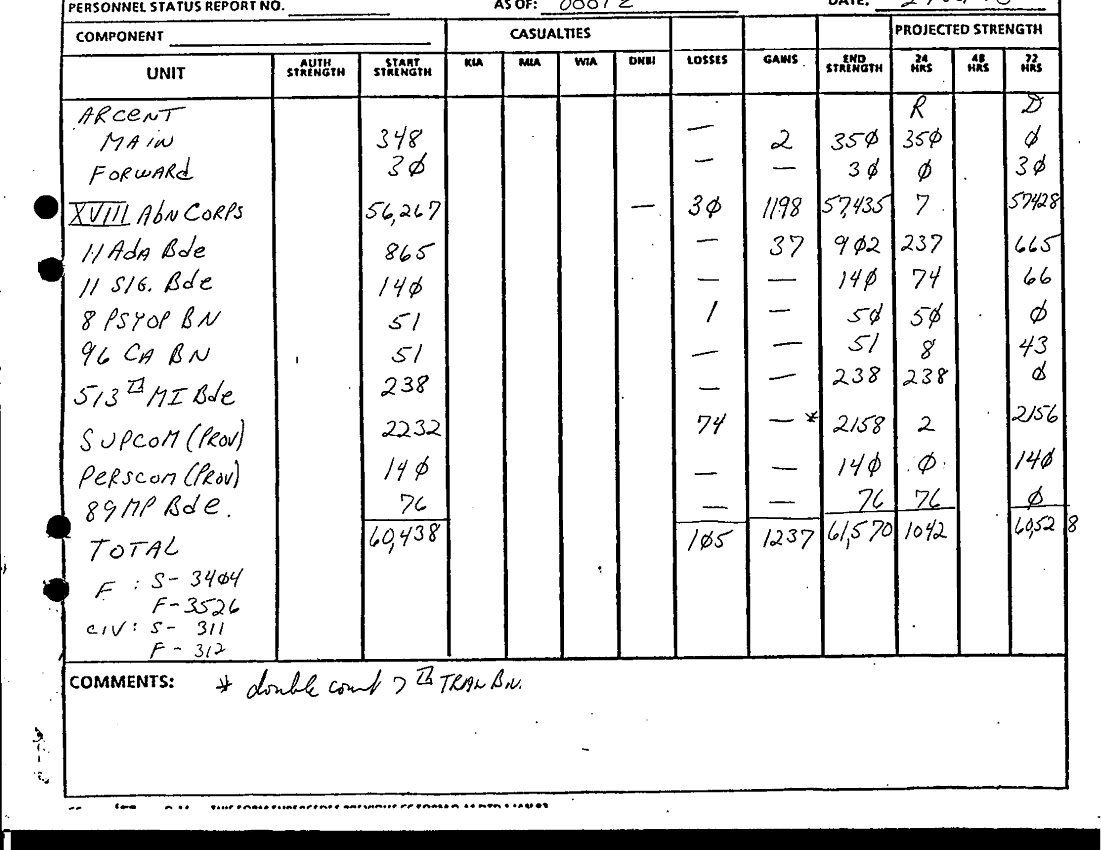 PERSONNEL STATUS REPORT NO. AS OF: DATE:
COMPONENT CASUALTIES PROJECTED STRENGTH
UNIT AUTH STRENGTH START STRENGTH KIA MIA WIA DNBI LOSSES GAINS END STRENGTH 24 HRS 48 HRS 72 HRS
ARCENT R D
MAIN 348 — 2 35Ø 35Ø Ø
FORWARD 3Ø — — 3Ø Ø 3Ø
XVIII Abn CORPS 56,267 — 3Ø 1198 57,435 7 57428
11 AdA Bde 865 — 37 9Ø2 237 665
11 SIG. Bde 14Ø — — 14Ø 74 66
8 PSYOP BN 51 1 — 5Ø 5Ø Ø
96 CA BN 51 — — 51 8 43
513th MI Bde 238 — — 238 238 Ø
SUPCOM (PROV) 2232 74 — * 2158 2 2156
PERSCOM (PROV) 14Ø — — 14Ø Ø 14Ø
89 MP Bde. 76 — — 76 76 Ø
TOTAL 60,438 1Ø5 1237 61,570 1042 60,528
F : S- 34Ø4
F-3526
CIV: S- 311
F - 312
COMMENTS: * double count 7th TRAN BN.